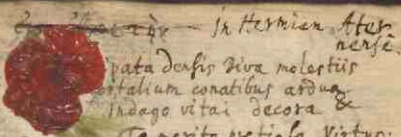 In Hermian Ater-
nense.
pata densis viva molestiis
ortalium conatibus ardua
Indago vitai decora &
Te merito Virtus: